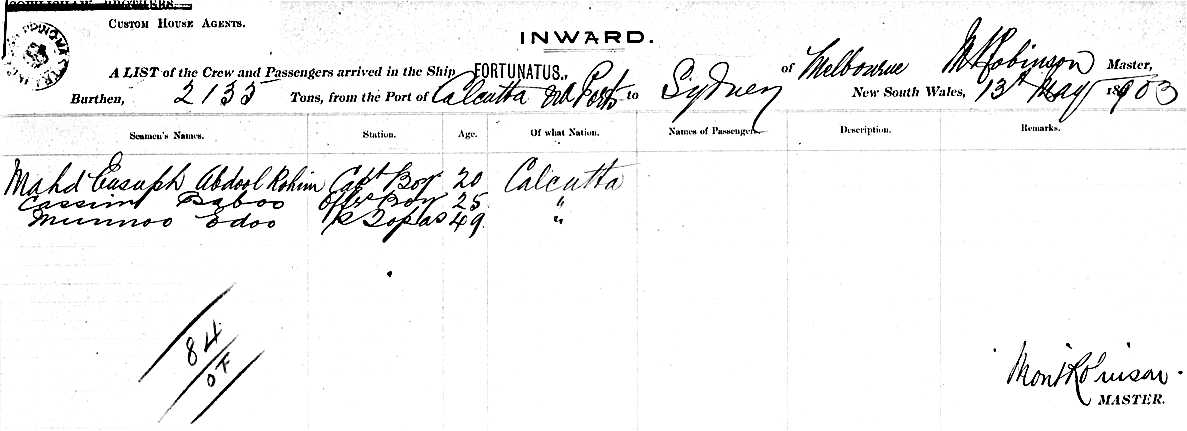 CUSTOM HOUSE AGENTS.
INWARD.
A LIST of the Crew and Passengers arrived in the Ship FORTUNATUS., of Melbourne Robinson Master,
Burthen, 2135 Tons, from the Port of Calcutta and Ports to Sydney New South Wales, 13th May 1903
Seamen's Names. Station. Age. Of what Nation. Names of Passengers. Description. Remarks.
Mahd Eusuph Abdool Rohim Capt Boy 20 Calcutta
Cassim Baboo Offrs Boy 25 "
Munnoo Edoo Topas 49 "
84
OF
Robinson
MASTER.